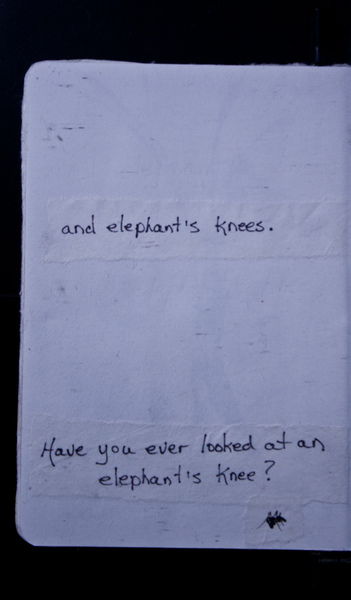 and elephant's knees.
Have you ever looked at an
elephant's knee?